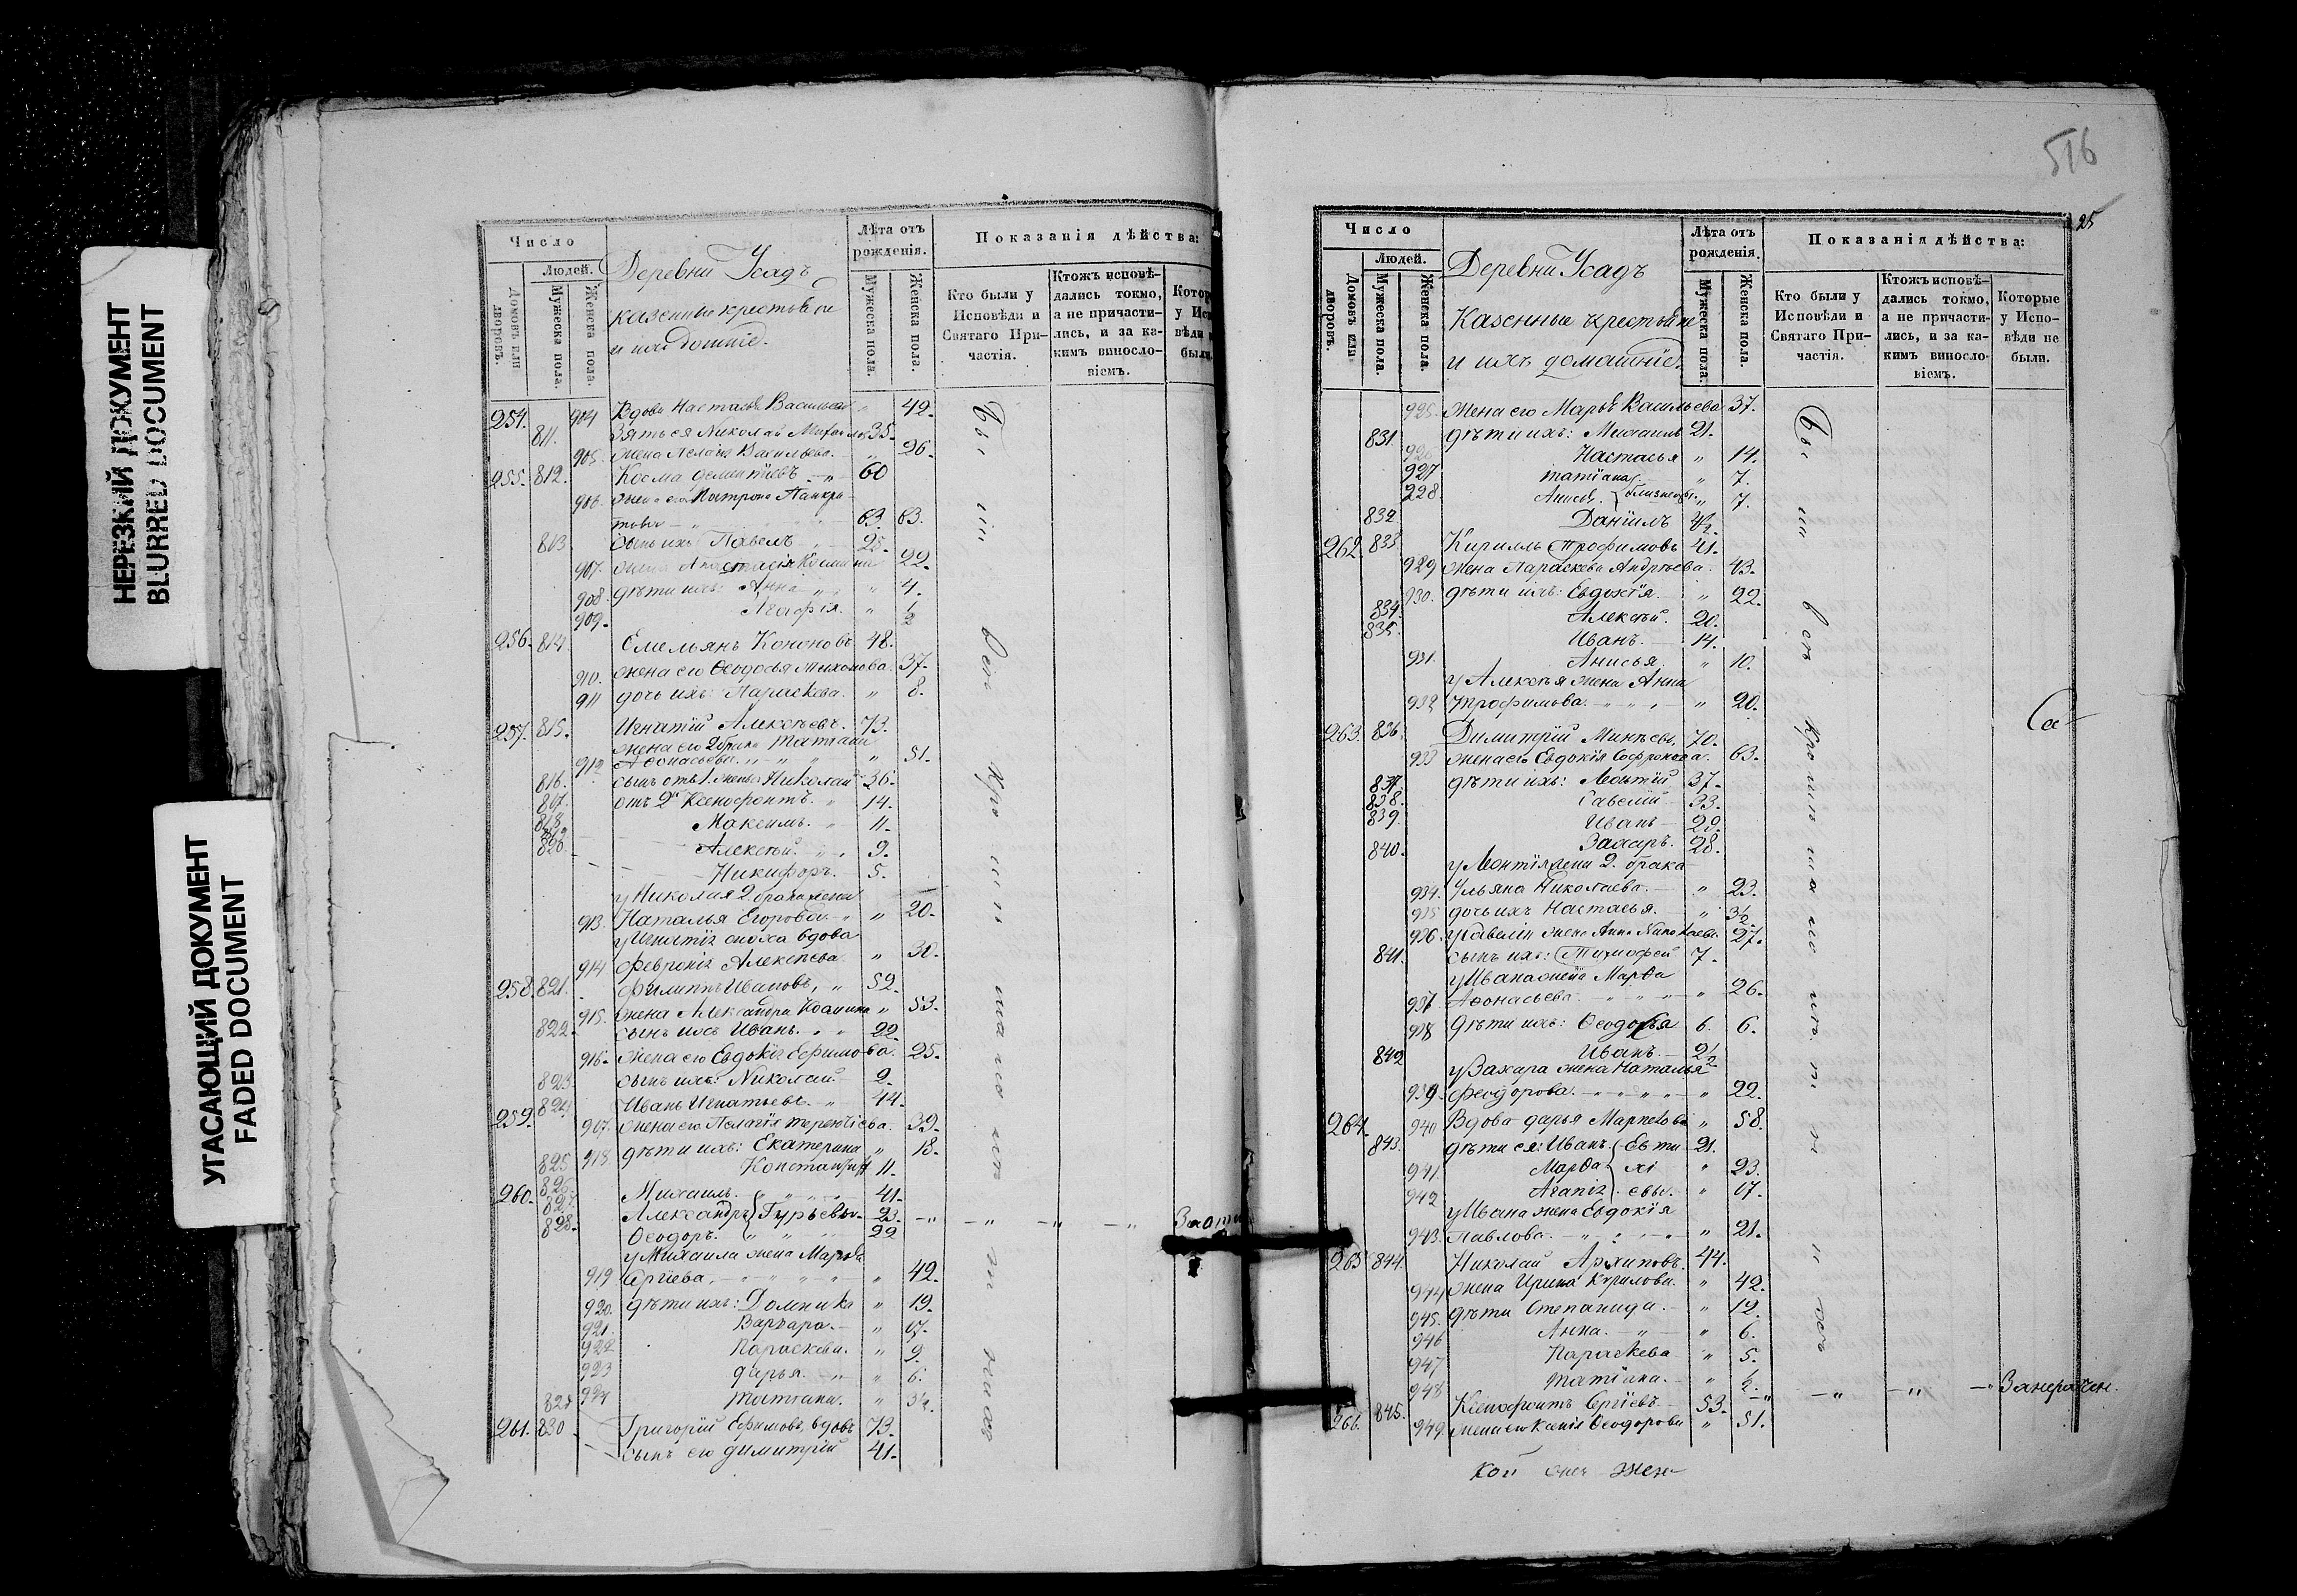 НЕРЕЗКИЙ ДОКУМЕНТ
BLURRED DOCUMENT
УГАСАЮЩИЙ ДОКУМЕНТ
FADED DOCUMENT
Число
Людей.
Домовъ или дворовъ.
Мужеска пола.
Женска пола.
Деревни Усадъ
казенные крестьяне
и их
Лѣта отъ рожденія.
Мужеска пола.
Женска пола.
Показанія дѣйства:
Кто были у Исповѣди и Святаго При-частія.
Ктожъ исповѣ-дались токмо, а не причасти-лись, и за ка-кимъ винosло-віемъ.
254. 904 Вдова Настасья Васильева 42.
811. Зять ея Николай 35.
905. жена Пелагія Васильева. 26.
255. 812. Косма Дементіевъ 60
906. жена его Матрона Панкра-
това 63. 63.
813 сынъ ихъ Павелъ 25.
907. жена Анастасія Космина 22.
908. дѣти ихъ: Анна " 4.
909. Агафія. " 1/2
256. 814 Емельянъ Кононовъ 48.
910. жена его Ѳеодосья Тихонова. 37.
911 дочь ихъ: Параскева. " 8.
257. 815. Игнатій Алексѣевъ. 73.
жена его 2 брака Татіана
912 Аѳонасьева. " 51.
816. сынъ отъ 1. жены Николай 36.
817. отъ 2й Ксенофонтъ. 14.
818 Максимъ. 11.
819 Алексѣй. 9.
820. Никифоръ. 5.
у Николая 2. брака жена
913. Наталья Егорова. " 20.
у Игнатія сноха вдова
914 Февронія Алексѣева " 30.
258. 821. Филиппъ Ивановъ, 52.
915. жена Александра Космина " 53.
822. сынъ ихъ Иванъ. 22.
916. жена его Евдокія Ефимова. 25.
823. сынъ ихъ: Николай. 2.
259. 824 Иванъ Игнатьевъ. 44.
917. жена его Пелагія Терентіева. 39.
918 дѣти ихъ: Екатерина " 18.
825 Константинъ 11.
260. 826. Михаилъ. 41.
827 Александръ Гурьевы. 23.
828. Ѳеодоръ. 22
у Михаила жена Марѳа
919 Сергіева. " 42.
920. дѣти ихъ: Домника " 19.
921. Варвара. " 17.
922 Параскева. " 9.
923 Дарья. " 6.
924 Татіана. " 3½.
261. 830 Григорій Ефимовъ, вдовъ 73.
сынъ его Димитрій 41.
516
25
Число
Людей.
Домовъ или дворовъ.
Мужеска пола.
Женска пола.
Деревни Усадъ
Казенные крестьяне
и ихъ домашніе.
Лѣта отъ рожденія.
Мужеска пола.
Женска пола.
Показанія дѣйства:
Кто были у Исповѣди и Святаго При-частія.
Ктожъ исповѣ-дались токмо, а не причасти-лись, и за ка-кимъ виносло-віемъ.
Которые у Испо-вѣди не были.
925. жена его Марья Васильева 37.
831. дѣти ихъ: Михаилъ 21.
926 Настасья " 14.
927 Татіана " 7.
928 Анисья близнецы " 7.
832. Даніилъ
262. 833 Кириллъ Трофимовъ 41.
929 жена Параскева Андрѣева. 43.
930. дѣти ихъ: Евдокія. " 22.
834. Алексѣй. 20.
835. Иванъ. 14.
931. Анисья. " 10.
у Алексѣя жена Анна
932 Трофимова. " 20.
263. 836. Димитрій Михѣевъ, 70.
933 жена его Евдокія Софронова. 63.
837. дѣти ихъ: Леонтій 37.
838. Савелій 33.
839. Иванъ 29.
840. Захаръ. 28.
у Леонтія жена 2. брака
934. Ульяна Николаева. " 23.
935 дочь ихъ Настасья. " 3½.
936. у Савелія жена Анна Николаева. 27.
841. сынъ ихъ: Тимофей 7.
у Ивана жена Марѳа
937. Аѳонасьева. " 26.
938 дѣти ихъ: Ѳеодосья 6. 6.
842 Иванъ. 2½
у Захара жена Наталья
939. Феодорова. " 22.
264. 940 Вдова Дарья Маркелова " 58.
843. дѣти ея: Иванъ Евти- 21.
941. Марѳа хі " 23.
942 Агапія евы. " 17.
у Ивана жена Евдокія
943. Павлова. " 21.
265 844. Николай Архиповъ. 44.
944 жена Ирина Кирилова. " 42.
945. дѣти Степанида. " 12
946 Анна. " 6.
947 Параскева " 5.
948 Татіана. " ½.
266. 845. Ксенофонтъ Сергіевъ 53.
949. жена его Ксенія Ѳеодорова " 51.